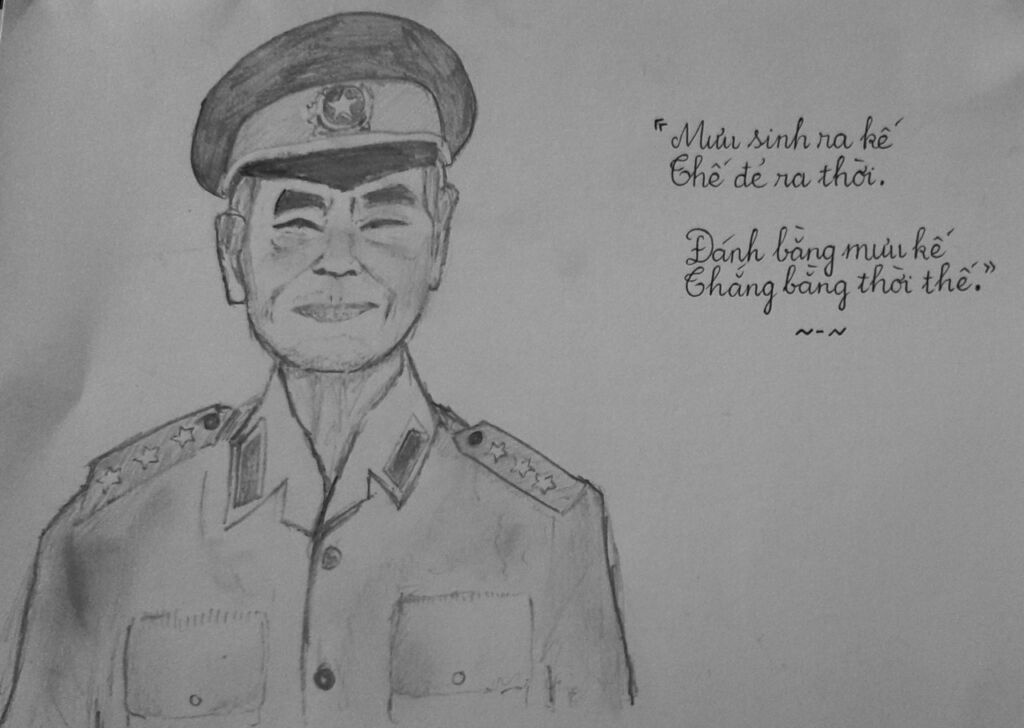 "Mưu sinh ra kế
Thế đẻ ra thời.
Đánh bằng mưu kế
Thắng bằng thời thế."